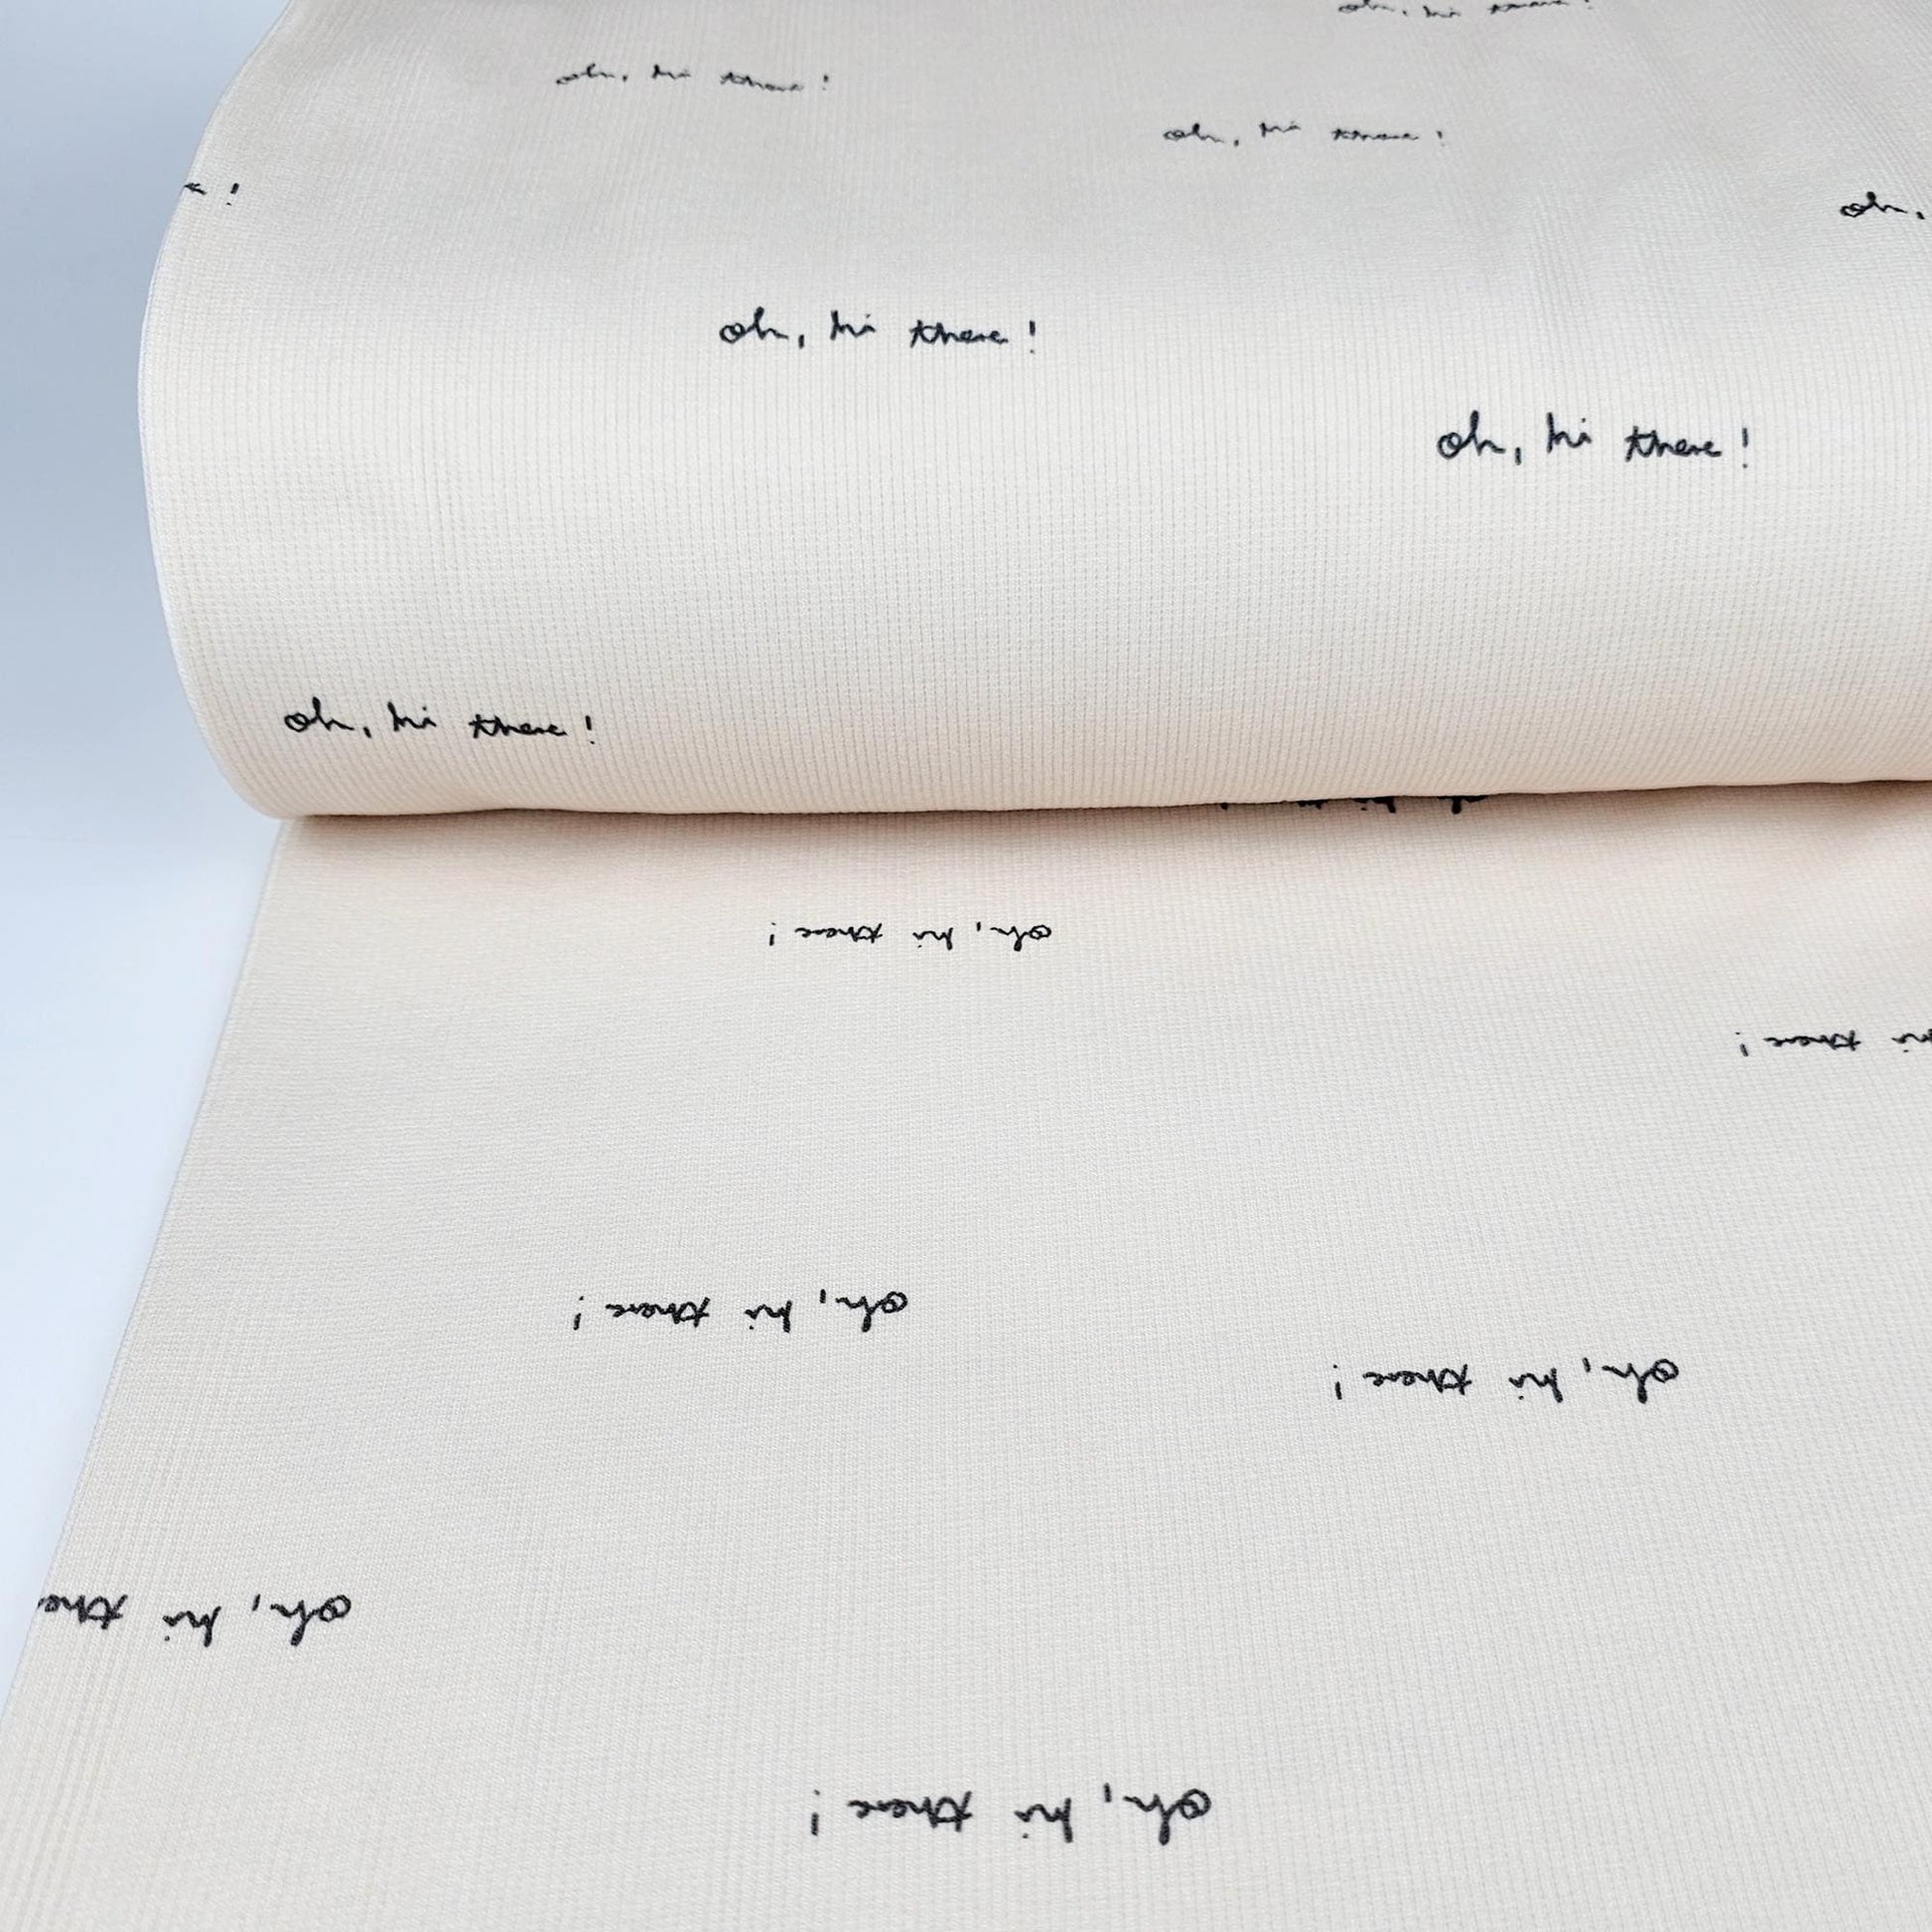 oh, hi there!
oh, hi there!
oh, hi there!
!
oh,
oh, hi there!
oh, hi there!
oh, hi there!
oh, hi there!
hi there!
oh, hi there!
oh, hi there!
oh, hi the
oh, hi there!